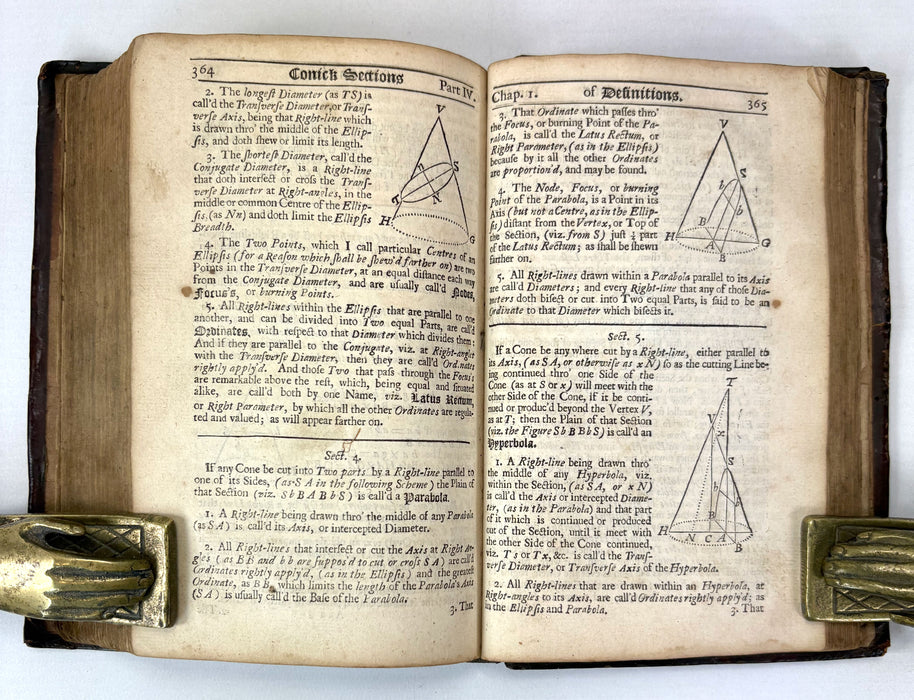 364 Conick Sections Part IV.
2. The longest Diameter (as TS) is
call'd the Transverse Diameter, or Trans-
verse Axis, being that Right-line which
is drawn thro' the middle of the Ellip-
sis, and doth shew or limit its length.
3. The shortest Diameter, call'd the
Conjugate Diameter, is a Right-line
that doth intersect or cross the Trans-
verse Diameter at Right-angles, in the
middle or common Centre of the Ellip-
sis, (as Nn) and doth limit the Ellipsis
Breadth.
V
n
S
T
N
H
G
4. The Two Points, which I call particular Centres of an
Ellipsis (for a Reason which shall be shew'd farther on) are two
Points in the Transverse Diameter, at an equal distance each way
from the Conjugate Diameter, and are usually call'd Nodes,
Focus's, or burning Points.
5. All Right-lines within the Ellipsis that are parallel to one
another, and can be divided into Two equal Parts, are call'd
Ordinates, with respect to that Diameter which divides them:
And if they are parallel to the Conjugate, viz. at Right-angles
with the Transverse Diameter, then they are call'd Ordinates
rightly apply'd. And those Two that pass through the Focus's
are remarkable above the rest, which, being equal and situated
alike, are call'd both by one Name, viz. Latus Rectum,
or Right Parameter, by which all the other Ordinates are regula-
ted and valued; as will appear farther on.
Sect. 4.
If any Cone be cut into Two parts by a Right-line parallel to
one of its Sides, (as SA in the following Scheme) the Plain of
that Section (viz. S b B A B b S) is call'd a Parabola.
1. A Right-line being drawn thro' the middle of any Parabola
(as SA) is call'd its Axis, or intercepted Diameter.
2. All Right-lines that intersect or cut the Axis at Right An-
gles (as B B and b b are suppos'd to cut or cross S A) are call'd
Ordinates rightly apply'd, (as in the Ellipsis) and the greatest
Ordinate, as B B, which limits the length of the Parabola's Axis
(S A) is usually call'd the Base of the Parabola.
3. That
Chap. 1. of Definitions. 365
3. That Ordinate which passes thro'
the Focus, or burning Point of the Pa-
rabola, is call'd the Latus Rectum, or
Right Parameter, (as in the Ellipsis)
because by it all the other Ordinates
are proportion'd, and may be found.
4. The Node, Focus, or burning
Point of the Parabola, is a Point in its
Axis (but not a Centre, as in the Ellip-
sis) distant from the Vertex, or Top of
the Section, (viz. from S) just ¼ part
of the Latus Rectum; as shall be shewn
farther on.
V
S
b
b
B
H
A
G
B
5. All Right-lines drawn within a Parabola parallel to its Axis
are call'd Diameters; and every Right-line that any of those Dia-
meters doth bisect or cut into Two equal Parts, is said to be an
Ordinate to that Diameter which bisects it.
Sect. 5.
If a Cone be any where cut by a Right-line, either parallel to
its Axis, (as S A, or otherwise as x N) so as the cutting Line be-
ing continued thro' one Side of the
Cone (as at S or x) will meet with the
other Side of the Cone, if it be conti-
nued or produc'd beyond the Vertex V,
as at T; then the Plain of that Section
(viz. the Figure S b B B b S) is call'd an
Hyperbola.
1. A Right-line being drawn thro'
the middle of any Hyperbola, viz.
within the Section, (as S A, or x N)
is call'd the Axis or intercepted Diame-
ter, (as in the Parabola) and that part
of it which is continued or produced
out of the Section, until it meet with
the other Side of the Cone continued,
viz. T S or T x, &c. is call'd the Trans-
verse Diameter, or Transverse Axis of the Hyperbola.
T
V
x
S
b
b
B
H
N C A
B
2. All Right-lines that are drawn within an Hyperbola, at
Right-angles to its Axis, are call'd Ordinates rightly apply'd; as
in the Ellipsis and Parabola.
3. That